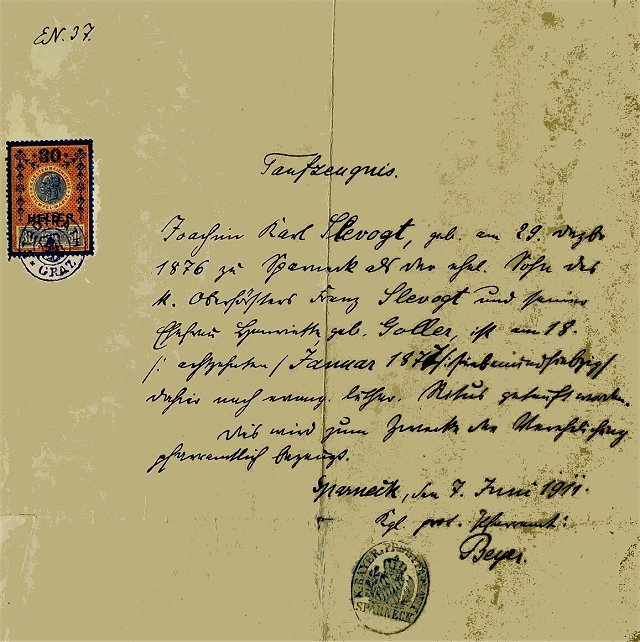 EN. 37.
30
HELLER
GRAZ
Taufzeugnis.
Joachim Karl Slevogt, geb. am 29. Dezbr
1876 zu Sparneck als der ehel. Sohn des
k. Oberförsters Franz Slevogt und seiner
Ehefrau Henriette, geb. Goller, ist am 18.
/: achtzehnten / Januar 1877 /: siebenundsiebzig /
dahier nach evang. luther. Ritus getauft worden.
Dies wird zum Zwecke der Verehelichung
pfarramtlich bezeugt.
Sparneck, den 7. Juni 1911.
Kgl. prot. Pfarramt:
Beyer.
K. BAYER. PROT. PFARRAMT
SPARNECK